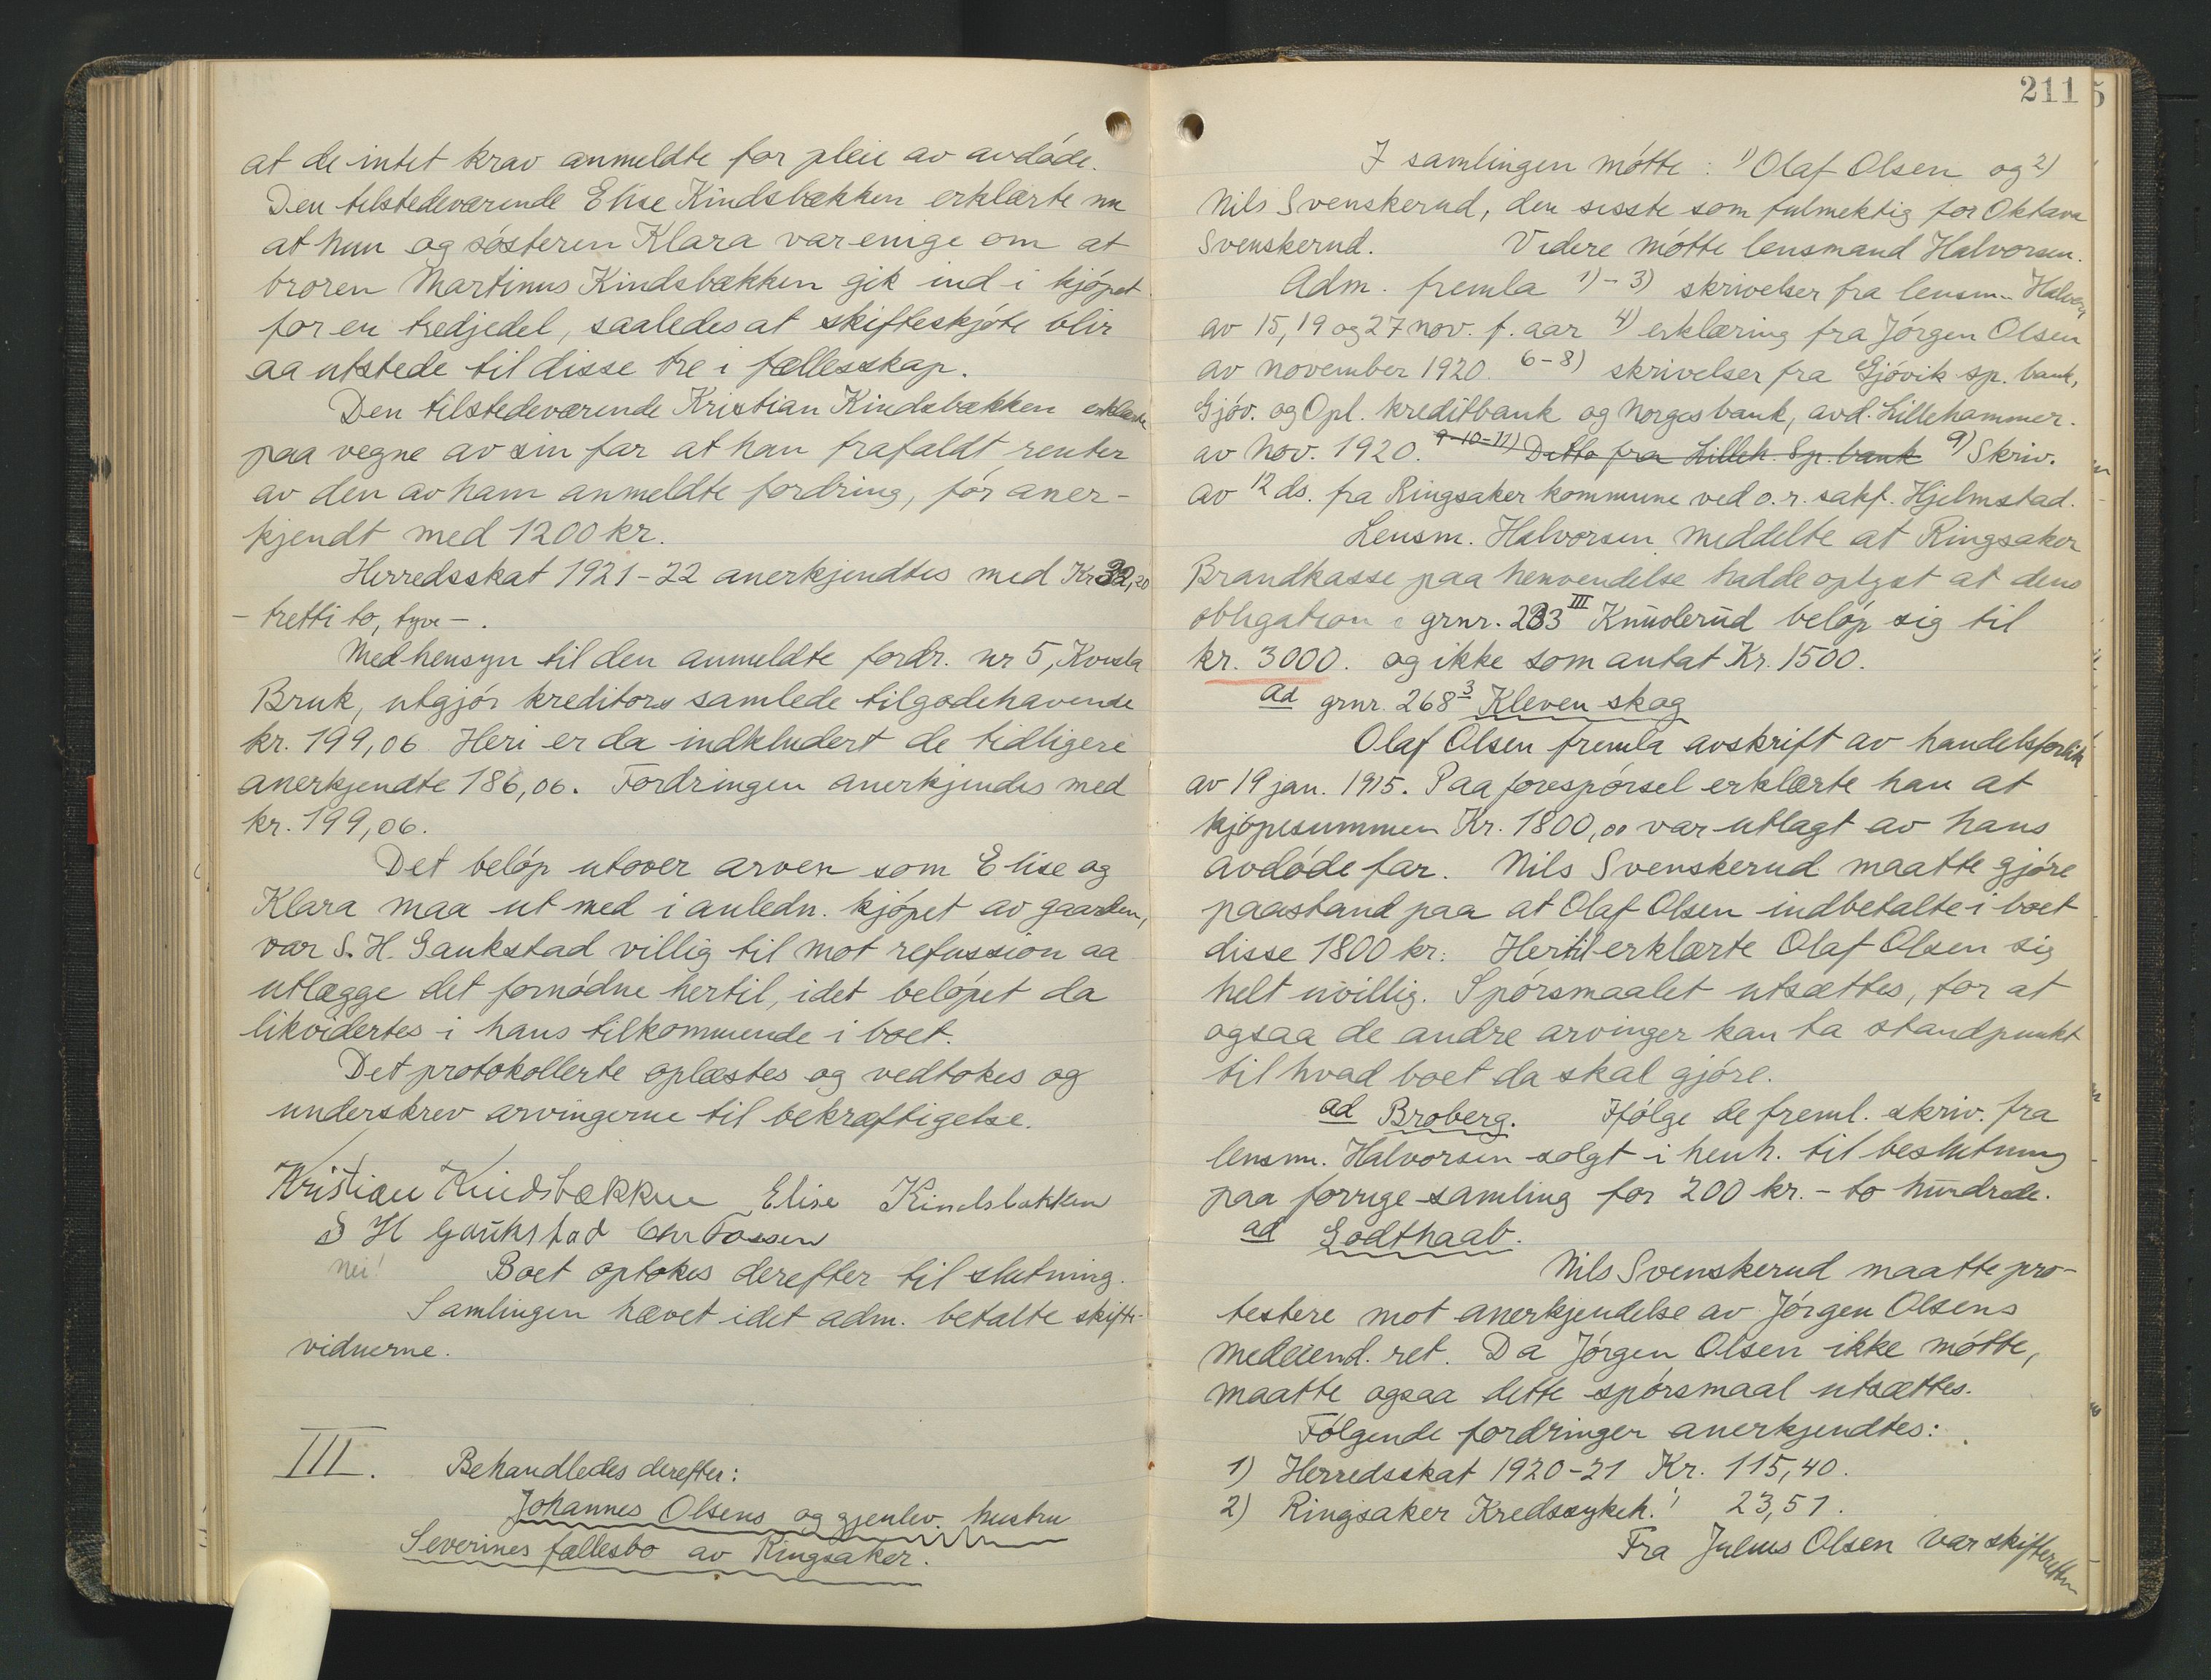 at de intet krav anmeldte for pleie av avdøde.
Den tilstedeværende Elise Kindsbækken erklærte nu
at hun og søsteren Klara var enige om at
broren Martinus Kindsbækken gik ind i kjøpet
for en tredjedel, saaledes at skifteskjøte blir
aa utstede til disse tre i fællesskap.
Den tilstedeværende Kristian Kindsbækken erklærte
paa vegne av sin far at han frafaldt renter
av den av ham anmeldte fordring, før aner-
kjendt med 1200 kr.
Herredsskat 1921-22 anerkjendtes med Kr 32,20
- tretti to, tyve - .
Med hensyn til den anmeldte fordr. nr 5, Kvista
Bruk, utgjør kreditors samlede tilgodehavende
kr. 199,06. Heri er da indkludert de tidligere
anerkjendte 186,06. Fordringen anerkjendes med
kr. 199,06.
Det beløp utover arven som Elise og
Klara maa ut med i anledn. kjøpet av gaarden,
var S. H. Gaukstad villig til mot refussion aa
utlægge det fornødne hertil, idet beløpet da
likvidertes i hans tilkommende i boet.
Det protokollerte oplæstes og vedtokes og
underskrev arvingerne til bekræftigelse.
Kristian Kindsbækken Elise Kindsbakken
S H Gaukstad Chr Fossen
nei! Boet optokes derefter til slutning.
Samlingen hævet idet adm. betalte skifte-
vidnerne.
III. Behandledes derefter:
Johannes Olsens og gjenlev. hustru
Severines fællesbo av Ringsaker.
211
I samlingen møtte : 1) Olaf Olsen og 2)
Nils Svenskerud, den sisste som fulmektig for Oktava
Svenskerud. Videre møtte lensmand Halvorsen.
Adm. fremla 1) - 3) skrivelser fra lensm. Halvors.
av 15, 19 og 27 nov. f. aar 4) erklæring fra Jørgen Olsen
av november 1920. 6-8) skrivelser fra Gjøvik sp. bank,
Gjøv. og Opl. kreditbank og Norges bank, avd. Lillehammer.
av nov. 1920. 9-10-11) Ditto fra Lilleh. Sp. bank 9) Skriv.
av 12 ds. fra Ringsaker kommune ved o. r. sakf. Hjelmstad.
Lensm. Halvorsen meddelte at Ringsaker
Brandkasse paa henvendelse hadde oplyst at dens
obligation i grnr. 233 III Knuderud beløp sig til
kr. 3000. og ikke som antat Kr. 1500.
ad grnr. 268 3 Kleven skog
Olaf Olsen fremla avskrift av handelsforlik
av 19 jan. 1915. Paa forespørsel erklærte han at
kjøpesummen Kr. 1800,00 var utlagt av hans
avdøde far. Nils Svenskerud maatte gjøre
paastand paa at Olaf Olsen indbetalte i boet
disse 1800 kr. Hertil erklærte Olaf Olsen sig
helt uvillig. Spørsmaalet utsættes, for at
ogsaa de andre arvinger kan ta standpunkt
til hvad boet da skal gjøre.
ad Broberg. Ifølge de freml. skriv. fra
lensm. Halvorsen solgt i henh. til beslutning
paa forrige samling for 200 kr. - to hundrede.
ad Godthaab.
Nils Svenskerud maatte pro-
testere mot anerkjendelse av Jørgen Olsens
medeiend. ret. Da Jørgen Olsen ikke møtte,
maatte ogsaa dette spørsmaal utsættes.
Følgende fordringer anerkjendtes:
1) Herredsskat 1920-21 Kr. 115,40.
2) Ringsaker Kredssykek. " 23,51.
Fra Julius Olsen var skifteretten